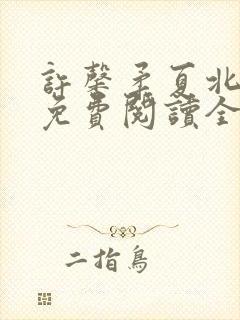 許馨矛夏北
免費閱讀全
二指鳥